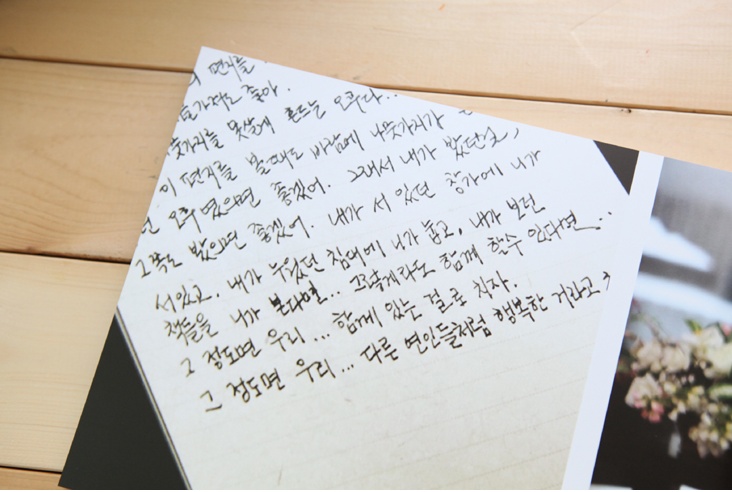 편지를
들가져도 좋아.
뭇가지를 못살게 흔드는 오후다..
이 편지를 볼때도 바람에 나뭇가지가
오후였으면 좋겠어. 그래서 내가 봤던것,
그쪽도 봤으면 좋겠어. 내가 서 있던 창가에 니가
서있고, 내가 누웠던 침대에 니가 눕고, 내가 보던
책들을 니가 본다면... 그렇게라도 함께 할수 있다면...
그 정도면 우리... 함께 있는 걸로 치자.
그 정도면 우리... 다른 연인들처럼 행복한 거라고,